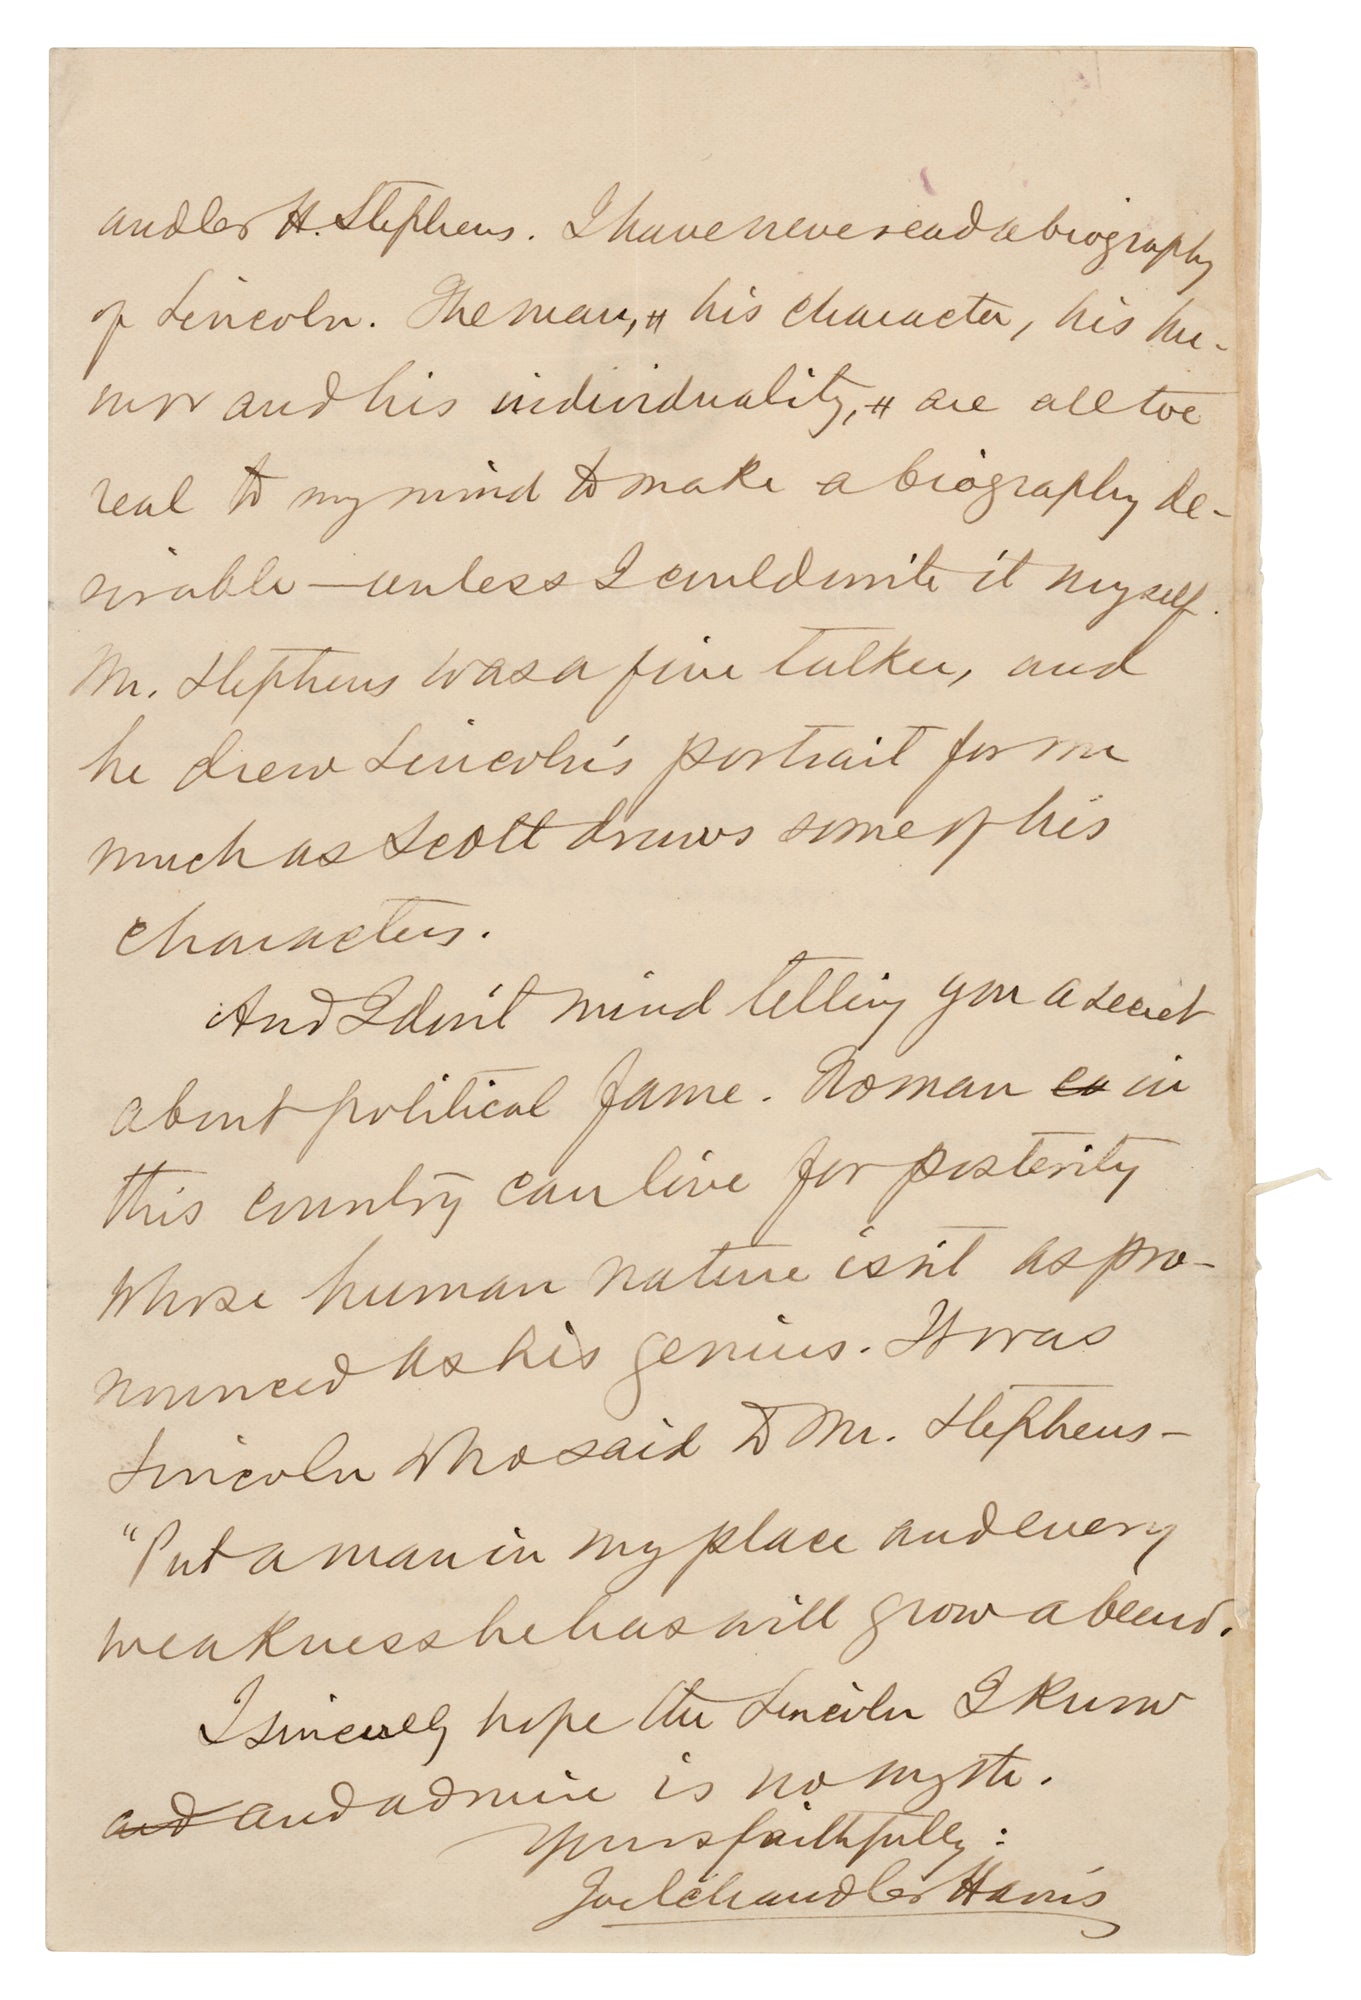 andler H. Stephens. I have never read a biography
of Lincoln. The man, # his character, his hu-
mor and his individuality, # are all too
real to my mind to make a biography de-
sirable — unless I could write it myself.
Mr. Stephens was a fine talker, and
he drew Lincoln's portrait for me
much as Scott draws some of his
characters.
And I don't mind telling you a secret
about political fame. No man ca in
this country can live for posterity
whose human nature isn't as pro-
nounced as his genius. It was
Lincoln who said to Mr. Stephens —
"Put a man in my place and every
weakness he has will grow a beard.
I sincerely hope the Lincoln I know
and and admire is no myth.
Yours faithfully:
Joel Chandler Harris